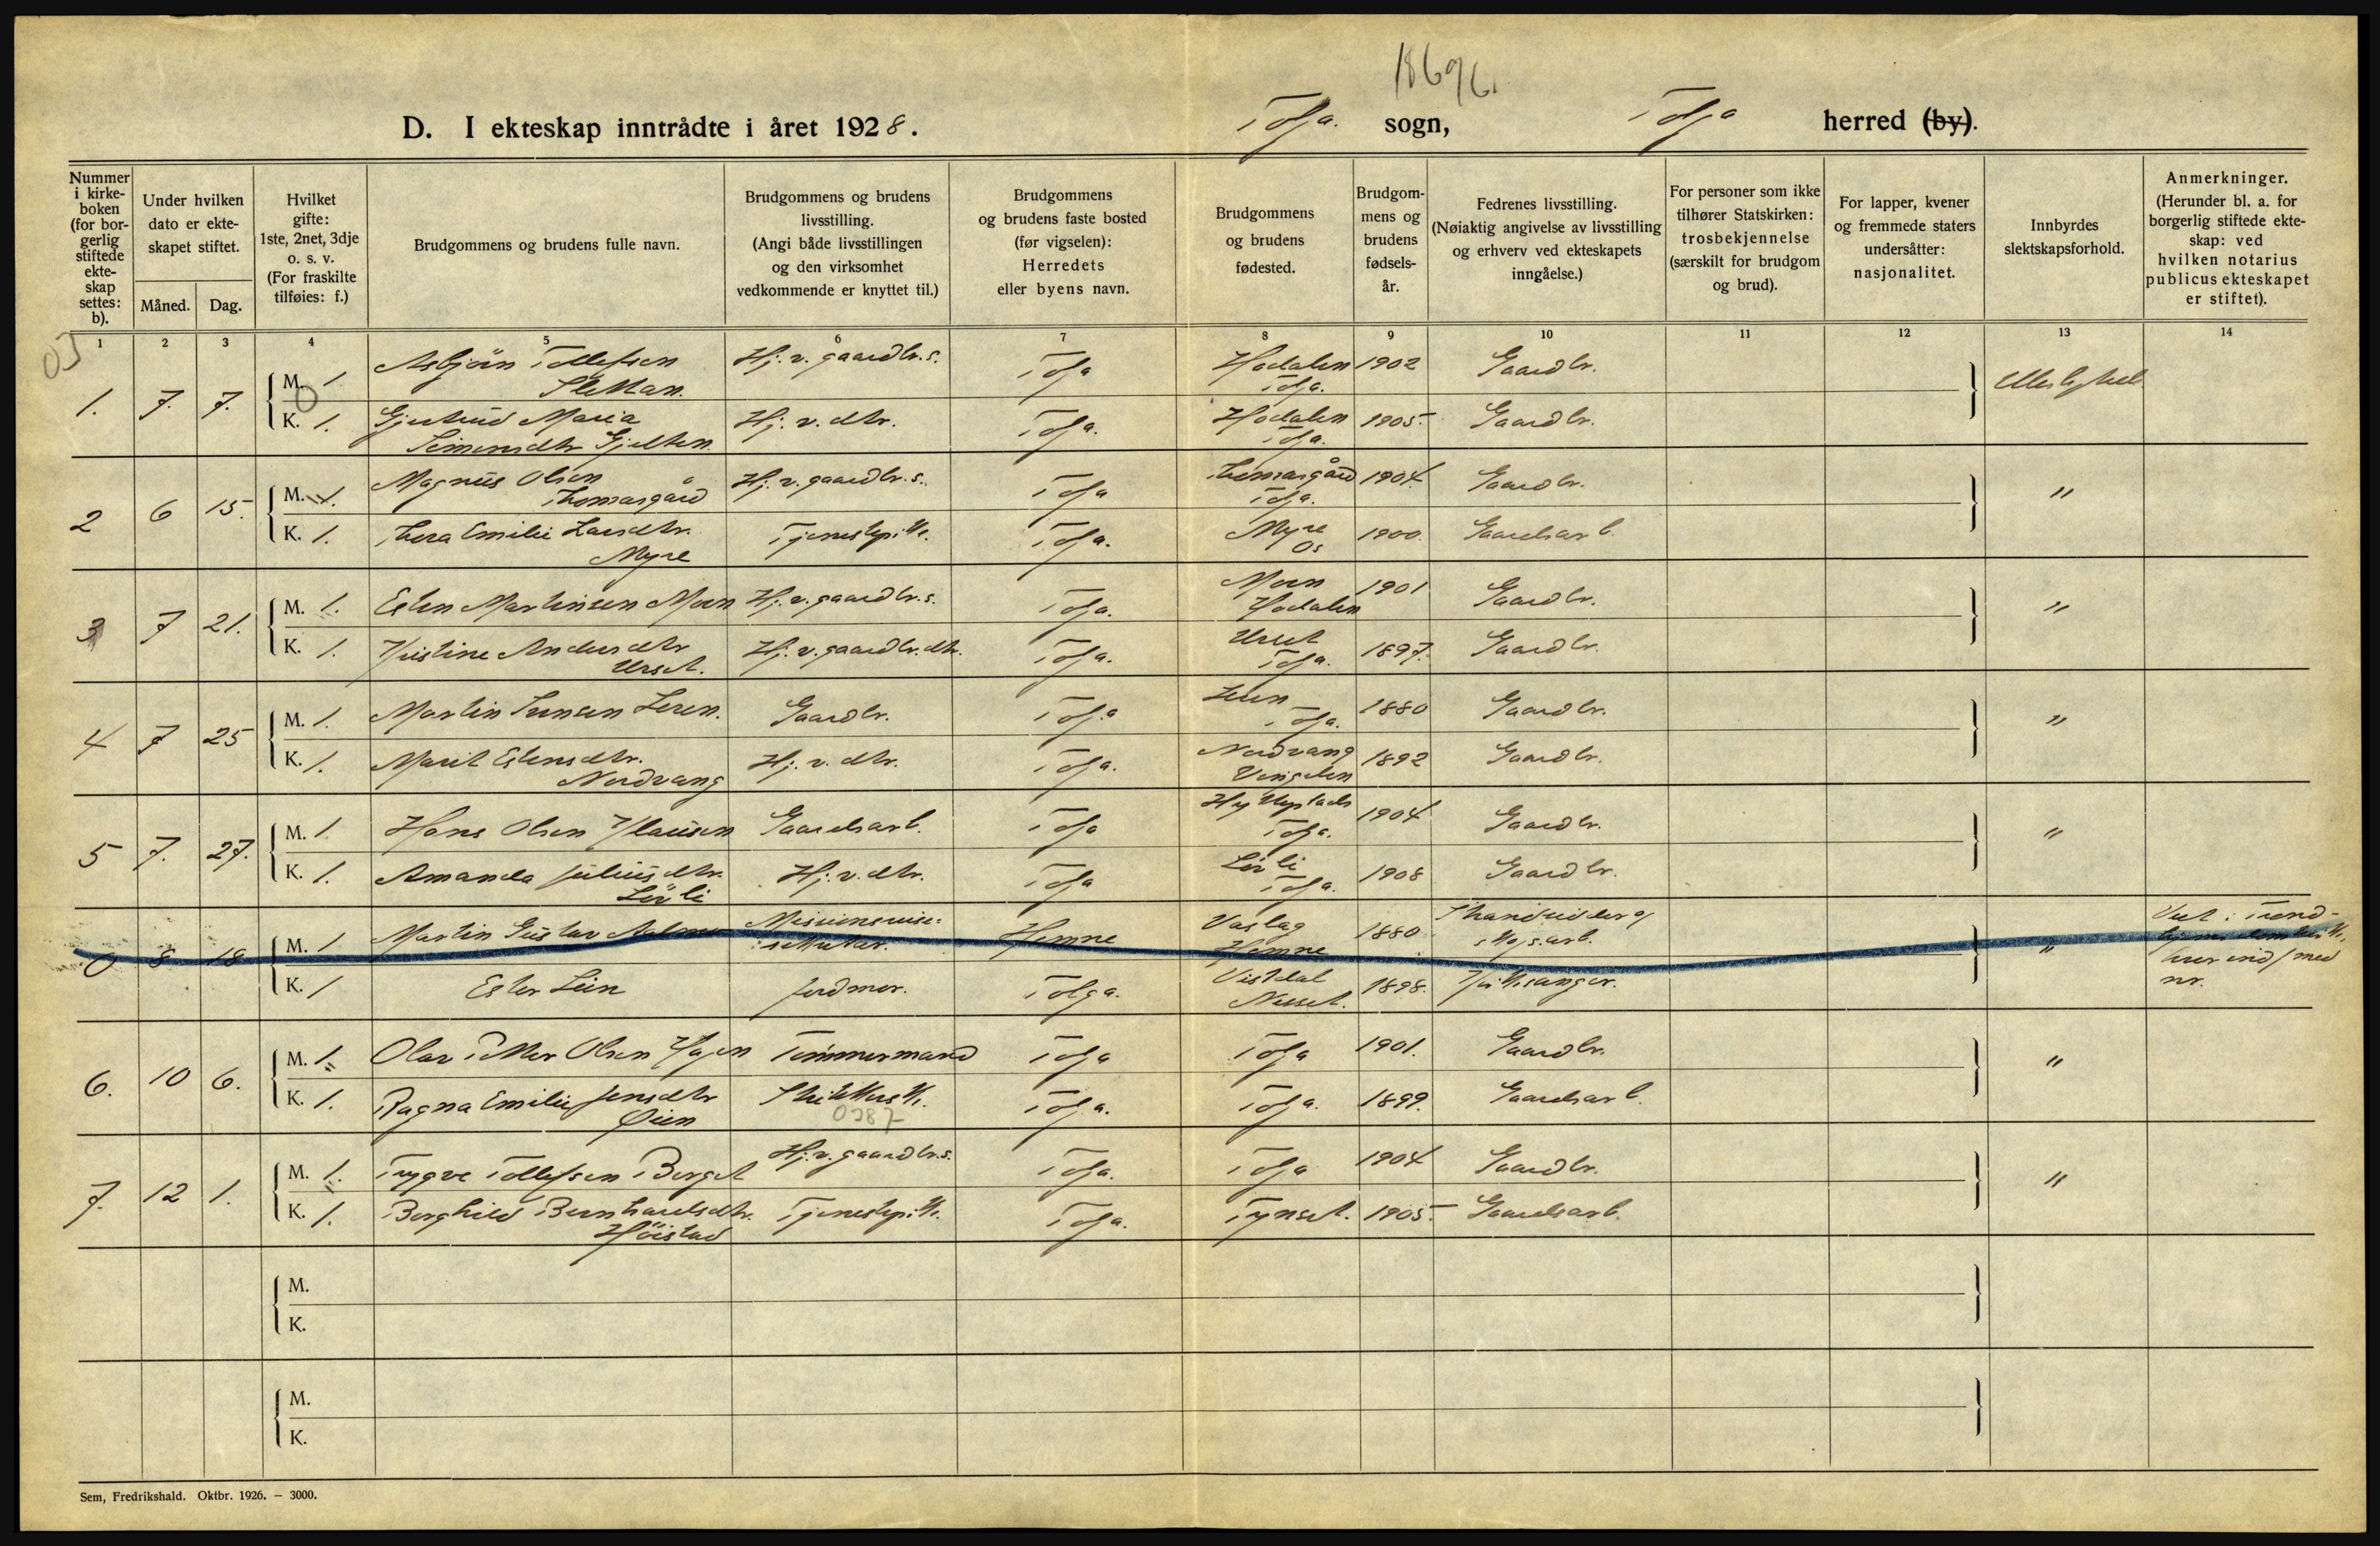 18696.
D. I ekteskap inntrådte i året 1928.
Tolga. sogn, Tolga herred (by).
Nummer i kirkeboken (for borgerlig stiftede ekteskap settes: b).
Under hvilken dato er ekteskapet stiftet.
Måned. Dag.
Hvilket gifte: 1ste, 2net, 3dje o. s. v. (For fraskilte tilføies: f.)
Brudgommens og brudens fulle navn.
Brudgommens og brudens livsstilling. (Angi både livsstillingen og den virksomhet vedkommende er knyttet til.)
Brudgommens og brudens faste bosted (før vigselen): Herredets eller byens navn.
Brudgommens og brudens fødested.
Brudgommens og brudens fødselsår.
Fedrenes livsstilling. (Nøiaktig angivelse av livsstilling og erhverv ved ekteskapets inngåelse.)
For personer som ikke tilhører Statskirken: trosbekjennelse (særskilt for brudgom og brud).
For lapper, kvener og fremmede staters undersåtter: nasjonalitet.
Innbyrdes slektskapsforhold.
Anmerkninger. (Herunder bl. a. for borgerlig stiftede ekteskap: ved hvilken notarius publicus ekteskapet er stiftet).
1 2 3 4 5 6 7 8 9 10 11 12 13 14
1. 7. 7. M. 1 Asbjörn Tollefsen Sletten. Hj. v. gaardbr. s. Tolga Hodalen Tolga. 1902 Gaardbr.
K. 1. Gjertrud Maria Simensdtr Gjelten. Hj. v. dtr. Tolga. Hodalen Tolga. 1905. Gaardbr.
2 6 15. M. 1. Magnus Olsen Thomasgård Hj. v. gaardbr. s. Tolga Thomasgård Tolga. 1904. Gaardbr. "
K. 1. Thora Emilie Larsdtr. Myre Tjenestepike. Tolga. Myre Os 1900. Gaardsarb.
3 7 21. M. 1. Esten Martinsen Moen Hj. v. gaardbr. s. Tolga. Moen Hodalen 1901 Gaardbr. "
K. 1. Kristine Andersdtr Urset. Hj. v. gaardbr. dtr. Tolga. Urset Tolga. 1897. Gaardbr.
4 7 25 M. 1. Martin Leren. Gaardbr. Tolga Leren Tolga. 1880 Gaardbr. "
K. 1. Marit Estensdtr. Nordvang Hj. v. dtr. Tolga. Nordvang Vingelen 1892 Gaardbr.
5 7. 27. M. 1. Hans Olsen Gaardsarb. Tolga Tolga. 1904 Gaardbr. "
K. 1. Amanda Juliusdtr. Lörli Hj. v. dtr. Tolga Lörli Tolga. 1908 Gaardbr.
0 8 18 M. 1 Martin Gustav Hemne Vaslag Hemne 1880 "
K. 1 Ester Lien Jordmor. Tolga. Vistdal Nesset. 1898. Kirkesanger.
6. 10 6. M. 1. Olav Petter Olsen Hagen Tømmermand Tolga Tolga 1901. Gaardbr. "
K. 1. Ragna Emilie Jensdtr Øien Tolga. Tolga. 1899. Gaardsarb.
7. 12 1. M. 1. Trygve Tollefsen Borget Hj. v. gaardbr. s. Tolga. Tolga 1904 Gaardbr. "
K. 1. Borghild Bernhardsdtr. Höistad Tjenestepike. Tolga. Tynset. 1905. Gaardsarb.
M.
K.
M.
K.
Sem, Fredrikshald. Oktbr. 1926. – 3000.